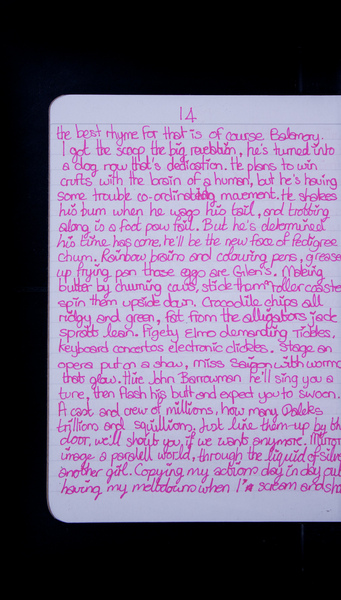 14
the best rhyme for that is of course Balamory.
I got the scoop the big revelation, he's turned into
a dog now that's dedication. He plans to win
crufts with the brain of a human, but he's having
some trouble co-ordinating movement. He shakes
his bum when he wags his tail, and trotting
along is a foot paw fail. But he's determined
his time has come, he'll be the new face of Pedigree
chum. Rainbow brains and colouring pens, grease
up frying pan those eggs are Glen's. Making
butter by churning cows, stick them in rollercoaster
spin them upside down. Crocodile chips all
ridgy and green, fat from the alligators jack
spratts lean. Figety Elmo demanding Tickles,
keyboard concertos electronic clickles. Stage an
opera put on a show, miss Saigon with
that glow. Hire John Barrowman he'll sing you a
tune, then flash his butt and expect you to swoon.
A cast and crew of millions, how many Daleks
trillions and squillions. Just line them up by th
door, we'll shout you if we want anymore. Mirror
image a paralell world, through the liquid of silve
another girl. Copying my actions day in day out
having my meltdowns when I scream and sho